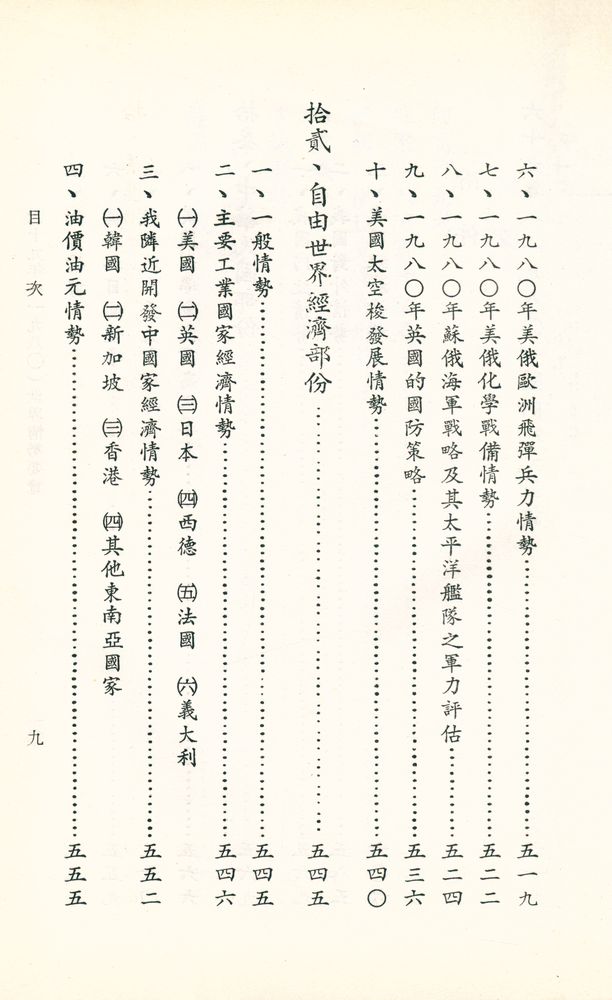 六、一九八〇年美俄歐洲飛彈兵力情勢……五一九
七、一九八〇年美俄化學戰備情勢……五二二
八、一九八〇年蘇俄海軍戰略及其太平洋艦隊之軍力評估……五二四
九、一九八〇年英國的國防策略……五三六
十、美國太空梭發展情勢……五四〇
拾貳、自由世界經濟部份……五四五
一、一般情勢……五四五
二、主要工業國家經濟情勢……五四六
㈠美國 ㈡英國 ㈢日本 ㈣西德 ㈤法國 ㈥義大利
三、我隣近開發中國家經濟情勢……五五二
㈠韓國 ㈡新加坡 ㈢香港 ㈣其他東南亞國家
四、油價油元情勢……五五五
目次 九